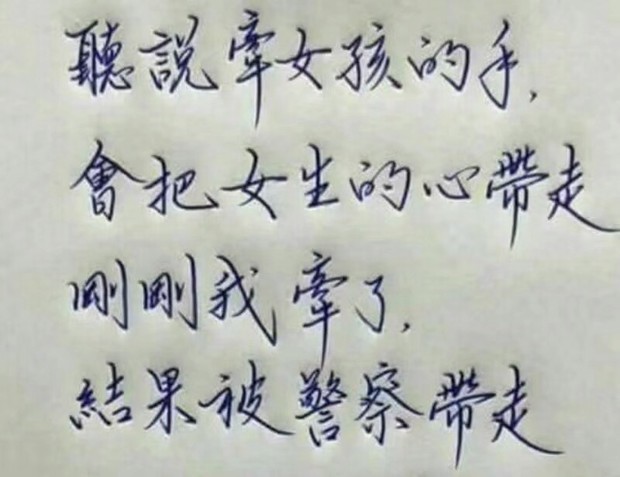 聽說牽女孩的手,
會把女生的心帶走
剛剛我牽了,
結果被警察帶走